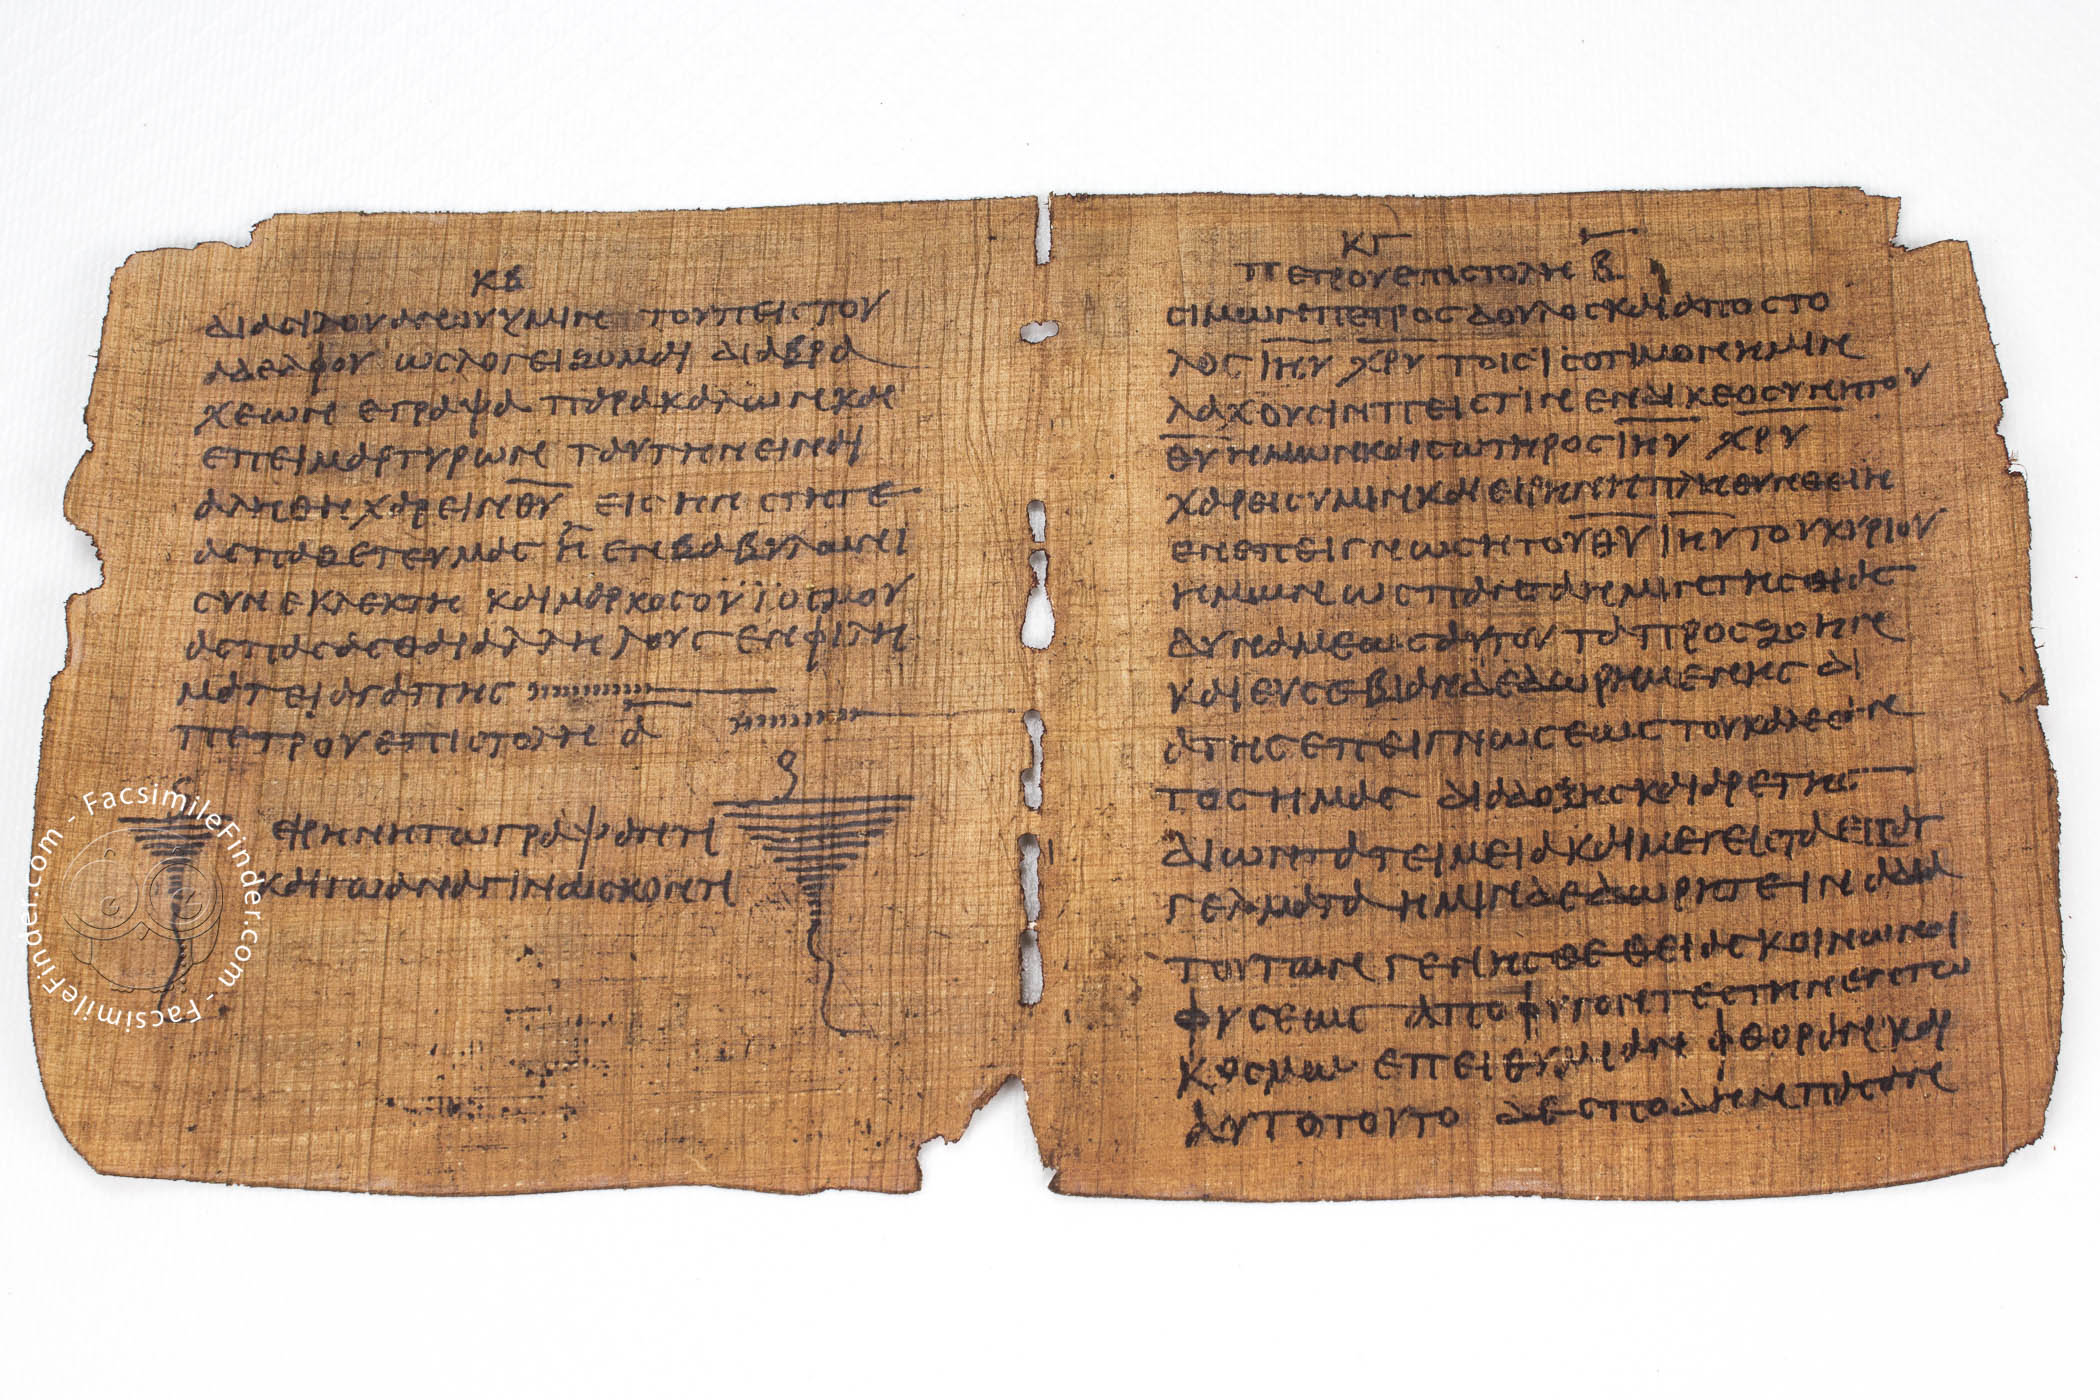 ΚΒ
ΔΙΑ ϹΙΛΟΥΑΝΟΥ ΥΜΙΝ ΤΟΥ ΠΕΙϹΤΟΥ
ΑΔΕΛΦΟΥ ΩϹ ΛΟΓΕΙΖΟΜΑΙ ΔΙΑ ΒΡΑ
ΧΕΩΝ ΕΓΡΑΨΑ ΠΑΡΑΚΑΛΩΝ ΚΑΙ
ΕΠΕΙΜΑΡΤΥΡΩΝ ΤΑΥΤΗΝ ΕΙΝΑΙ
ΑΛΗΘΗ ΧΑΡΕΙΝ Θ̅Υ̅ ΕΙϹ ΗΝ ϹΤΗΤΕ
ΑϹΠΑΘΕΤΕ ΥΜΑϹ Η ΕΝ ΒΑΒΥΛΩΝΙ
ϹΥΝΕΚΛΕΚΤΗ ΚΑΙ ΜΑΡΚΟϹ Ο ΥΙΟϹ ΜΟΥ
ΑϹΠΑϹΑϹΘΑΙ ΑΛΛΗΛΟΥϹ ΕΝ ΦΙΛΗ
ΜΑΤΕΙ ΑΓΑΠΗϹ
ΠΕΤΡΟΥ ΕΠΙϹΤΟΛΗ Α̅
ΕΙΡΗΝΗ ΤΩ ΓΡΑΨΑΝΤΙ
ΚΑΙ ΤΩ ΑΝΑΓΙΝΩϹΚΟΝΤΙ
ΚΓ
ΠΕΤΡΟΥ ΕΠΙϹΤΟΛΗ Β̅
ϹΙΜΩΝ ΠΕΤΡΟϹ ΔΟΥΛΟϹ ΚΑΙ ΑΠΟϹΤΟ
ΛΟϹ Ι̅Η̅Υ̅ Χ̅Ρ̅Υ̅ ΤΟΙϹ ΙϹΟΤΙΜΟΝ ΗΜΙΝ
ΛΑΧΟΥϹΙΝ ΠΕΙϹΤΙΝ ΕΝ ΔΙΚΕΟϹΥΝΗ ΤΟΥ
Θ̅Υ̅ ΗΜΩΝ ΚΑΙ ϹΩΤΗΡΟϹ Ι̅Η̅Υ̅ Χ̅Ρ̅Υ̅
ΧΑΡΕΙϹ ΥΜΙΝ ΚΑΙ ΕΙΡΗΝΗ ΠΛΗΘΥΝΘΕΙΗ
ΕΝ ΕΠΕΙΓΝΩϹΗ ΤΟΥ Θ̅Υ̅ Ι̅Η̅Υ̅ ΤΟΥ ΚΥΡΙΟΥ
ΗΜΩΝ ΩϹ ΠΑΝΤΑ ΗΜΙΝ ΤΗϹ ΘΙΑϹ
ΔΥΝΑΜΕΩϹ ΑΥΤΟΥ ΤΑ ΠΡΟϹ ΖΟΗΝ
ΚΑΙ ΕΥϹΕΒΙΑΝ ΔΕΔΩΡΗΜΕΝΗϹ ΔΙ
Α ΤΗϹ ΕΠΕΙΓΝΩϹΕΩϹ ΤΟΥ ΚΑΛΕϹΑΝ
ΤΟϹ ΗΜΑϹ ΔΙΑ ΔΟΞΗϹ ΚΑΙ ΑΡΕΤΗϹ
ΔΙ ΩΝ ΤΑ ΤΕΙΜΕΙΑ ΚΑΙ ΜΕΓΕΙϹΤΑ ΕΠΑΓ
ΓΕΛΜΑΤΑ ΗΜΙΝ ΔΕΔΩΡΗΤΕ ΙΝΑ ΔΙΑ
ΤΟΥΤΩΝ ΓΕΝΗϹΘΕ ΘΕΙΑϹ ΚΟΙΝΩΝΟΙ
ΦΥϹΕΩϹ ΑΠΟΦΥΓΟΝΤΕϹ ΤΗΝ ΕΝ ΤΩ
ΚΟϹΜΩ ΕΠΕΙΘΥΜΙΑΝ ΦΘΟΡΑΝ ΚΑΙ
ΑΥΤΟ ΤΟΥΤΟ ΔΕ ϹΠΟΔΗΝ ΠΑϹΑΝ
FacsimileFinder.com - FacsimileFinder.com -